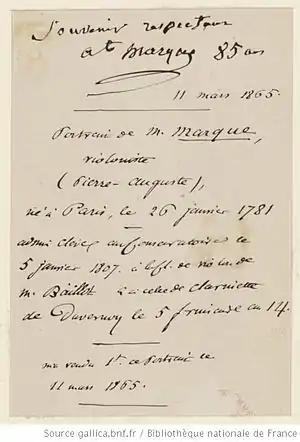 Souvenir respectueux
at Marque 85 ans
11 mars 1865.
Portrait de M. Marque,
violoniste
(Pierre-Auguste),
né à Paris, le 26 janvier 1781
admis élève au Conservatoire le
5 janvier 1807. à la cl. de violon de
M. Baillot à celle de clarinette
de Duvernoy le 5 fructidor an 14.
m'a vendu ce Portrait le
11 mars 1865.
Source gallica.bnf.fr / Bibliothèque nationale de France